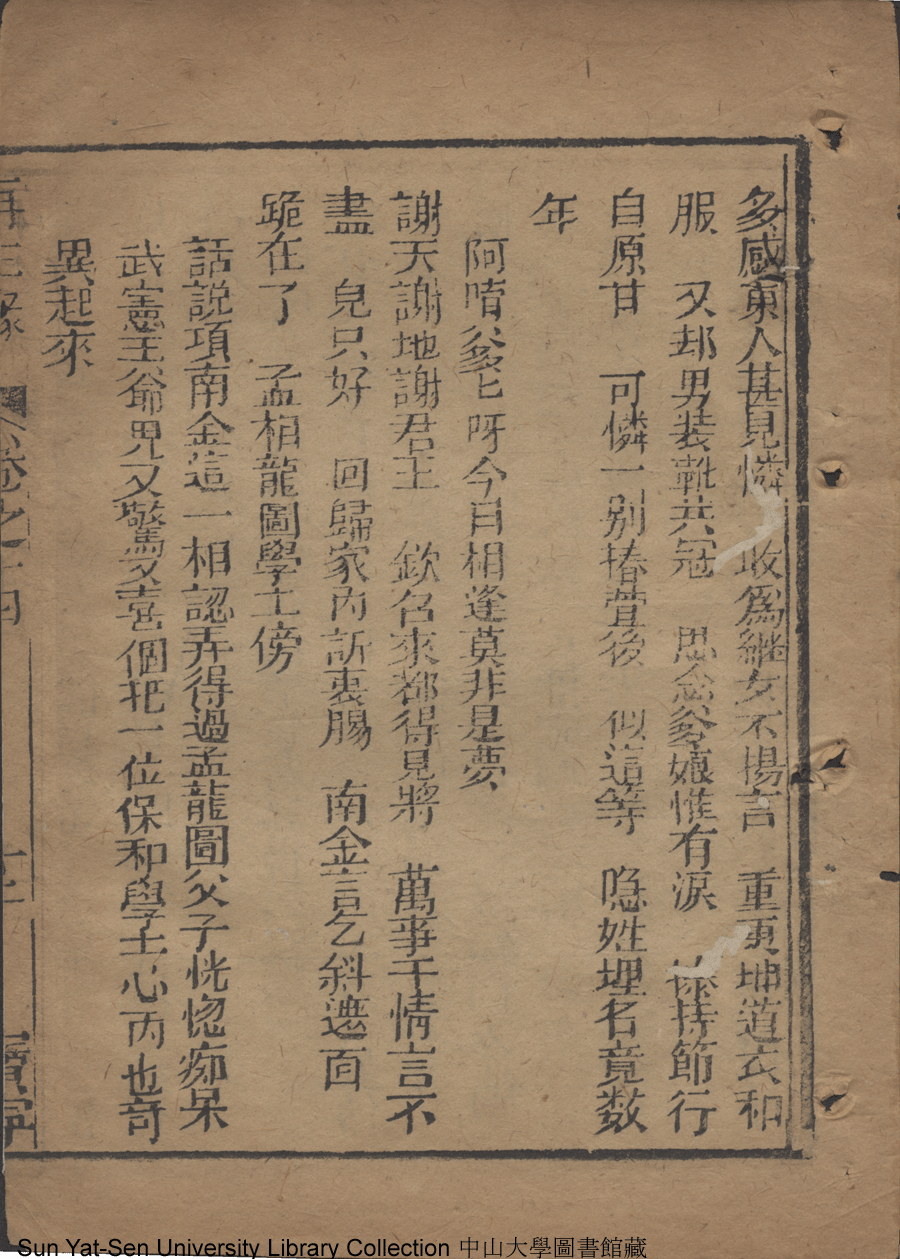 多感東人甚見憐 收為継女不揚言 重更坤道衣和
服 又却男装靴共冠 思念爹娘惟有淚 持節行
自原甘 可憐一别椿萱後 似這等 隐姓埋名竟数
年
阿唷爹匕呀今日相逢莫非是夢
謝天謝地謝君王 欽召來都得見將 萬事千情言不
盡 皃只好 回歸家內訴衷腸 南金言乞斜邉回
跪在了 孟相龍圖學士傍
話説項南金這一相認弄得過孟龍圖父子恍惚痴呆
武憲王爺児又驚又喜個把一位保和學士心內也奇
異起來
再生緣 卷之十四 寶寧
Sun Yat-Sen University Library Collection 中山大學圖書館藏